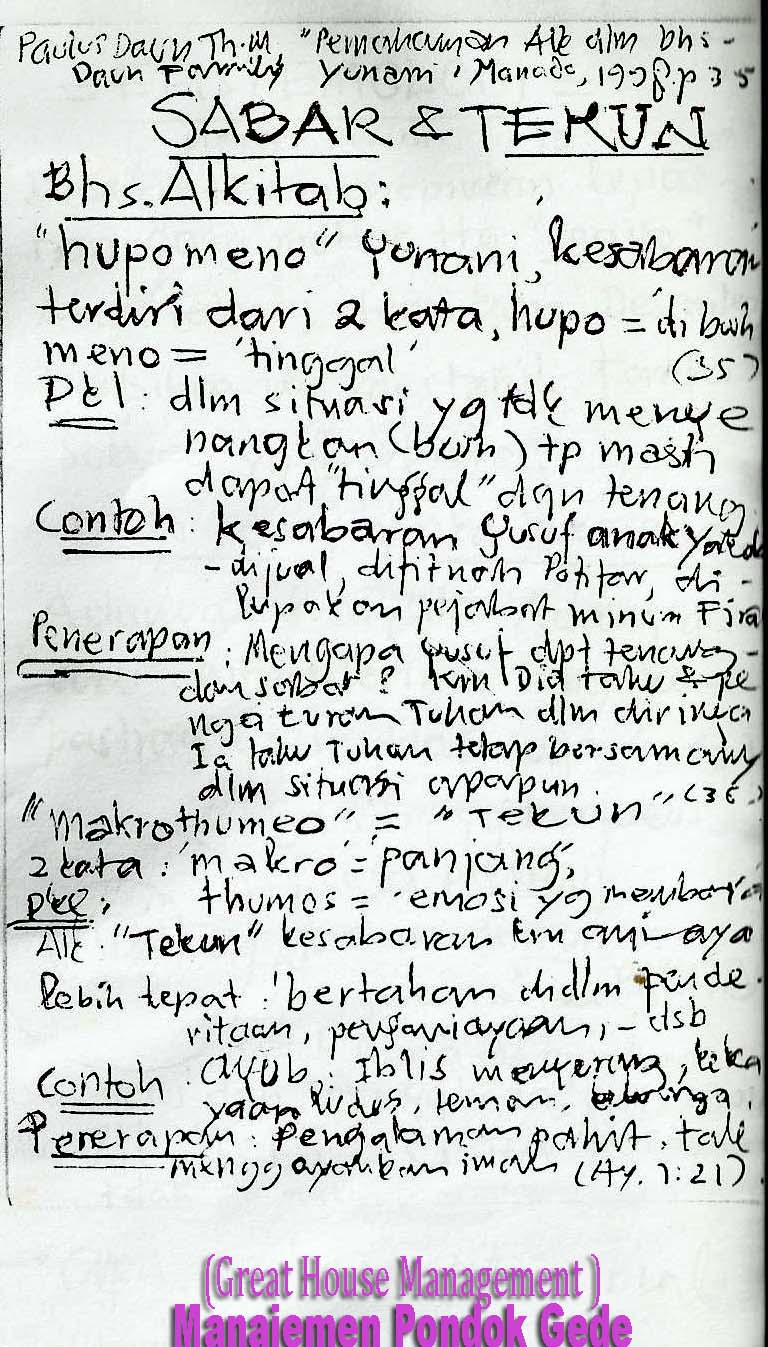 Paulus Daun Th.M, "Pemahaman Alk dlm bhs -
Daun Family Yunani, Manado, 1998.p 35
SABAR & TEKUN
Bhs. Alkitab:
"hupomeno" Yunani, kesabaran
terdiri dari 2 kata, hupo = 'di bwh
meno = 'tinggal' (35)
Dkl : dlm situasi yg tdk menye
nangkan (bwh) tp masih
dapat "tinggal" dgn tenang
Contoh : kesabaran Yusuf anak Yakub
- dijual, difitnah Potifar, di -
lupakan pejabat minum Fira
Penerapan : Mengapa Yusuf dpt tenang -
dan sabar? Krn Dia tahu & pe
ngaturan Tuhan dlm dirinya
Ia tahu Tuhan tetap bersamany
dlm situasi apapun. (36)
"Makrothumeo" = "Tekun"
2 kata : 'makro' = 'panjang,
Dkl : thumos = 'emosi yg membara
Alk : "Tekun" kesabaran krn aniaya
lebih tepat : 'bertahan didlm pende -
ritaan, penganiayaan, - dsb
Contoh : Ayub : Iblis menyerang, keka
yaan ludes, teman,
Penerapan : Pengalaman pahit, tak
menggoyahkan iman (Ay. 1:21).
(Great House Management)
Manajemen Pondok Gede